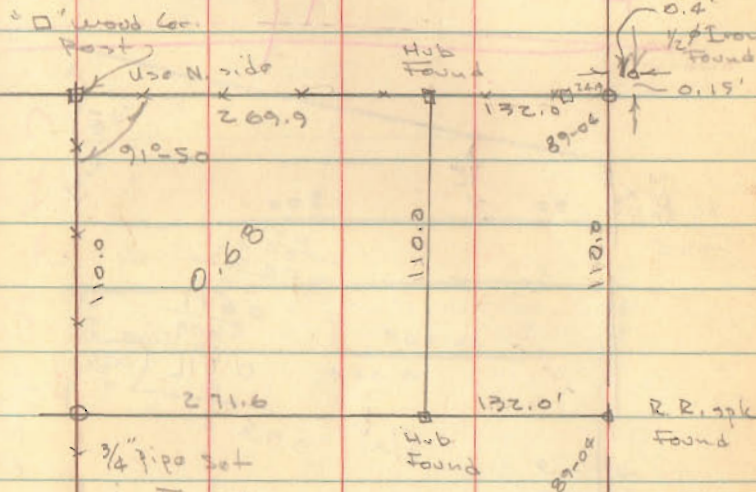 "□" wood Cor.
Post
Use N. side
Hub
Found
0.4'
1/2" ϕ Iron
Found
0.15'
269.9
132.0
24.9
89-04
91°-50
110.0
0.68
110.0
110.0
271.6
132.0'
R.R. spk
Found
3/4" Pipe Set
Hub
Found
89-04